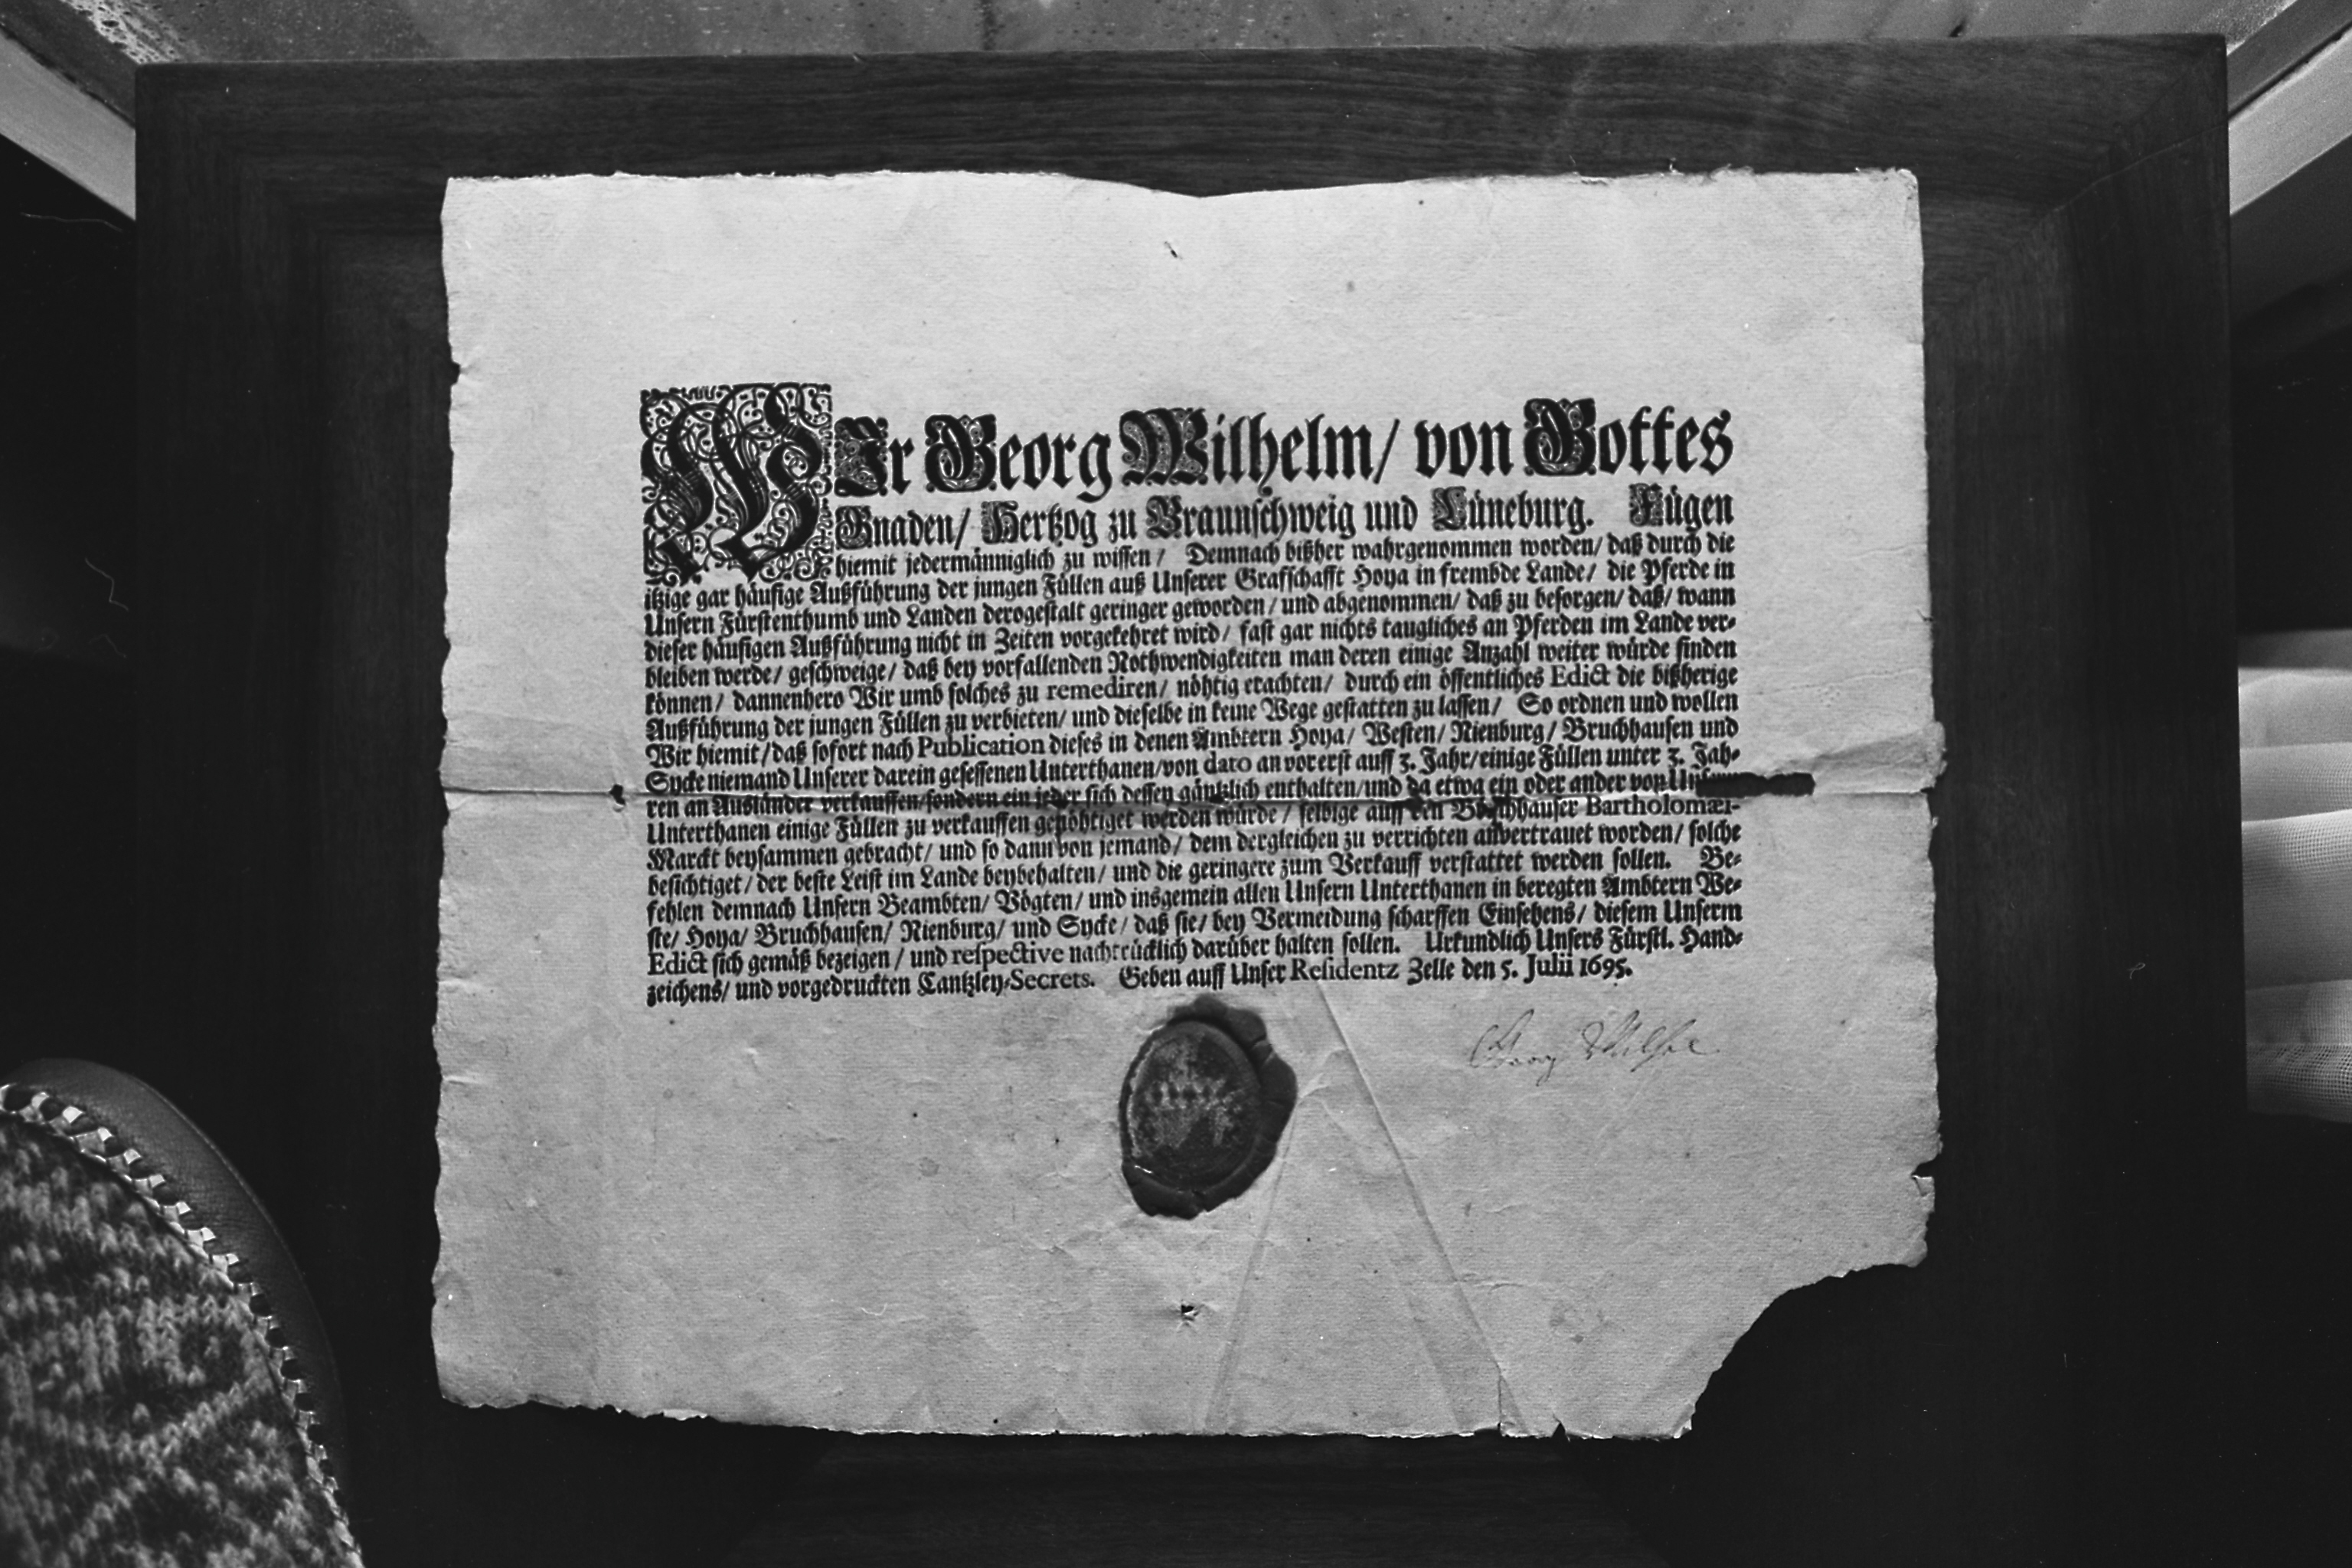 WIr Georg Wilhelm/ von Gottes
Gnaden/ Hertzog zu Braunschweig und Lüneburg. Fügen
hiemit jedermänniglich zu wissen/ Demnach bißher wahrgenommen worden/ daß durch die
itzige gar häufige Außführung der jungen Füllen auß Unserer Grafschafft Hoya in frembde Lande/ die Pferde in
Unsern Fürstenthumb und Landen derogestalt geringer geworden/ und abgenommen/ daß zu besorgen/ daß/ wann
dieser häufigen Außführung nicht in Zeiten vorgekehret wird/ fast gar nichts taugliches an Pferden im Lande ver-
bleiben werde/ geschweige/ daß bey vorfallenden Nothwendigkeiten man deren einige Anzahl weiter würde finden
können/ dannenhero Wir umb solches zu remediren/ nöhtig erachten/ durch ein öffentliches Edict die bißherige
Außführung der jungen Füllen zu verbieten/ und dieselbe in keine Wege gestatten zu lassen/ So ordnen und wollen
Wir hiemit/ daß sofort nach Publication dieses in denen Ämbtern Hoya/ Westen/ Nienburg/ Bruchhausen und
Sycke niemand Unserer darein gesessenen Unterthanen/ von dato an vorerst auff 3. Jahr/ einige Füllen unter 3. Jah-
ren an Ausländer verkauffen/ sondern ein jeder sich dessen gäntzlich enthalten/ und da etwa ein oder ander von
Unterthanen einige Füllen zu verkauffen genöhtiget werden würde/ selbige auff den Bruchhauser Bartholomæi-
Marckt beysammen gebracht/ und so dann von jemand/ dem dergleichen zu verrichten anvertrauet worden/ solche
besichtiget/ der beste Leist im Lande beybehalten/ und die geringere zum Verkauff verstattet werden sollen. Be-
fehlen demnach Unsern Beambten/ Vögten/ und insgemein allen Unsern Unterthanen in beregten Ämbtern We-
ste/ Hoya/ Bruchhausen/ Nienburg/ und Sycke/ daß sie/ bey Vermeidung scharffen Einsehens/ diesem Unserm
Edict sich gemäß bezeigen/ und respective nachtrücklich darüber halten sollen. Urkundlich Unsers Fürstl. Hand-
zeichens/ und vorgedruckten Cantzley-Secrets. Geben auff Unser Residentz Zelle den 5. Julii 1695.
Georg Wilhe